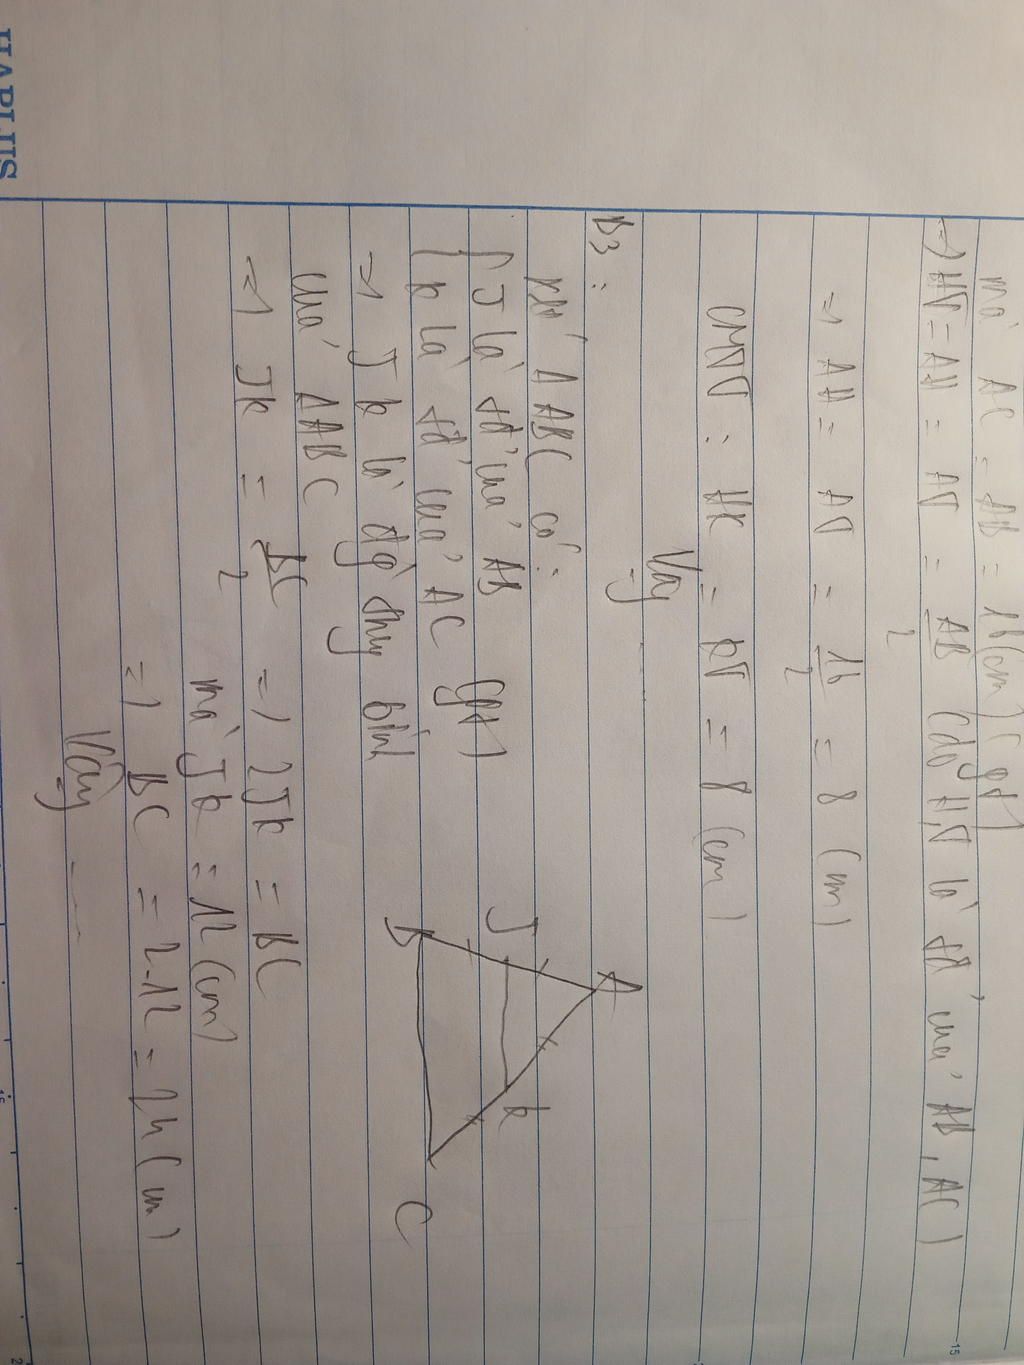 mà AC = AB = 16(cm) (gt)
=> HV = AH = AV = AB/2 (do H,V là tđ của AB, AC)
=> AH = AV = 16/2 = 8 (cm)
CMTT : HK = KV = 8 (cm)
Vậy ...
B3 :
Xét Δ ABC có :
{ J là tđ của AB
{ K là tđ của AC (gt)
=> JK là đg trung bình
của ΔABC
=> JK = BC/2 => 2JK = BC
mà JK = 12 (cm)
=> BC = 2.12 = 24 (cm)
Vậy ...
A
J
K
B
C
HAPLUS
15